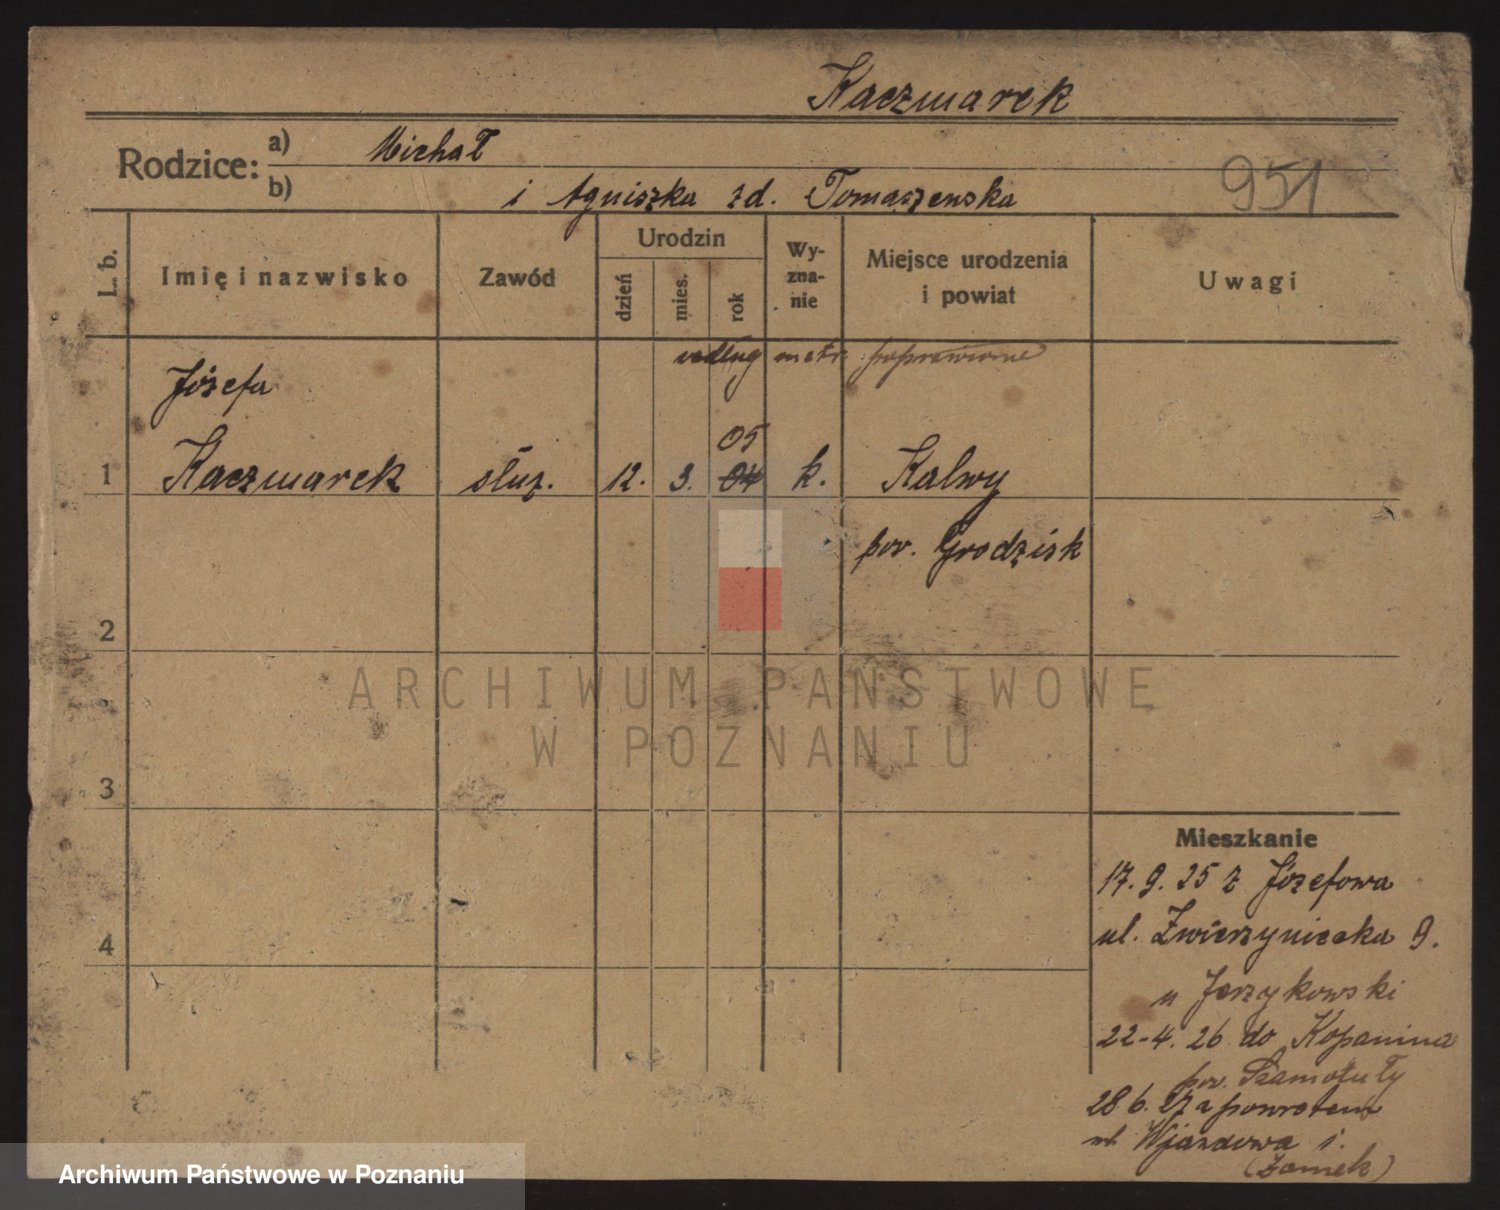 Kaczmarek
Rodzice: a) Michał
b) i Agniszka zd. Tomaszewska
951
L. b.
Imię i nazwisko
Zawód
Urodzin
dzień
mies.
rok
Wy-
zna-
nie
Miejsce urodzenia
i powiat
Uwagi
według metr. poprawione
Józefa
05
1 Kaczmarek służ. 12. 3. 04 k. Kalwy
pow. Grodzisk
2
ARCHIWUM PAŃSTWOWE
W POZNANIU
3
Mieszkanie
17. 9. 25 z Józefowa
ul. Zwierzyniecka 9.
4
u Jerzykowski
22-4. 26 do Kopanina
pow. Szamotuły
28. 6. 27 z powrotem
ul. Wjazdowa 1.
(Zamek)
Archiwum Państwowe w Poznaniu